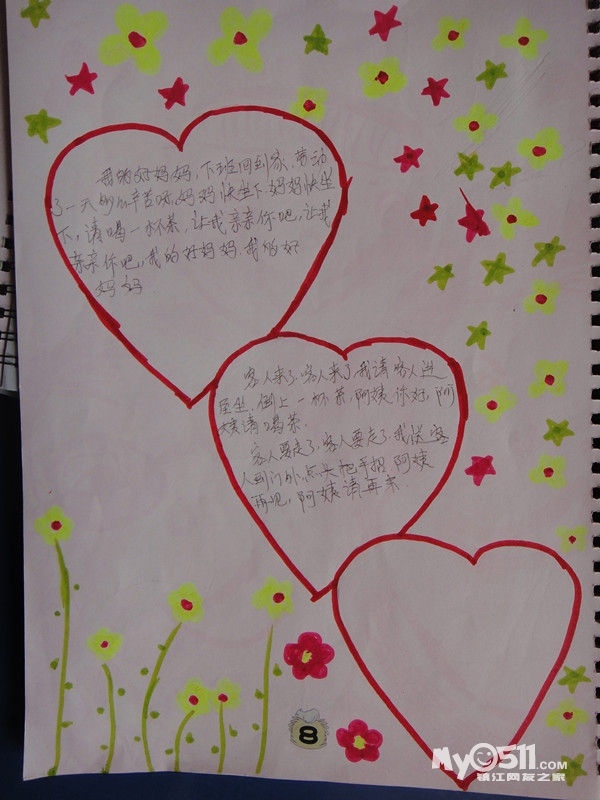 我的好妈妈,下班回到家,劳动
了一天多么辛苦呀,妈妈快坐下,妈妈快坐
下,请喝一杯茶,让我亲亲你吧,让我
亲亲你吧,我的好妈妈.我的好
妈妈.
客人来了,客人来了,我请客人进
屋坐,倒上一杯茶,阿姨你好,阿
姨请喝茶.
客人要走了,客人要走了,我送客
人到门外,点头把手招,阿姨
再见,阿姨请再来.
8
My0511.com
镇江网友之家